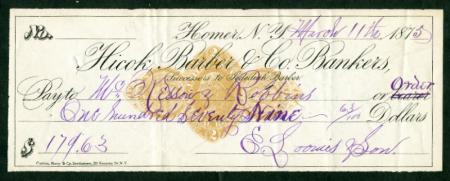 No.
Homer, N.Y. March 11th 1875
Hicok, Barber & Co. Bankers,
Successors to Jedediah Barber
Pay to Wm. Robbins or Order bearer
One hundred Seventy Nine 63/100 Dollars
$ 179.63
E. Loomis & Son.